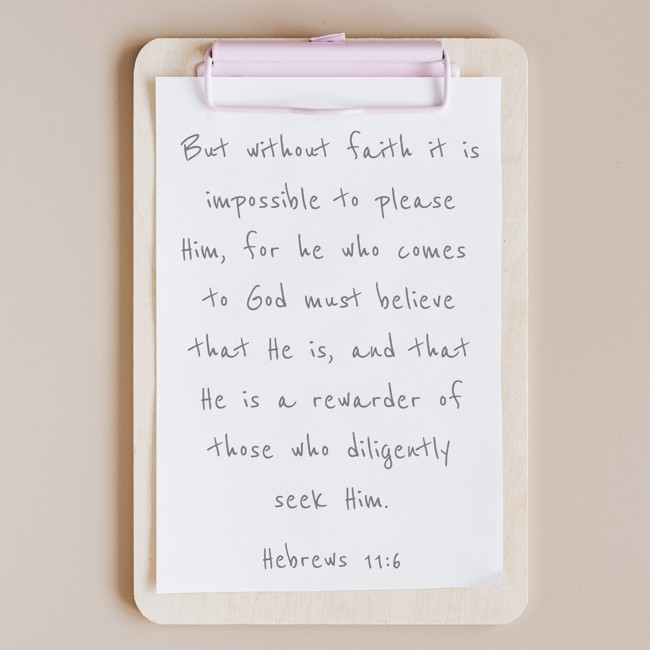 But without faith it is
impossible to please
Him, for he who comes
to God must believe
that He is, and that
He is a rewarder of
those who diligently
seek Him.
Hebrews 11:6